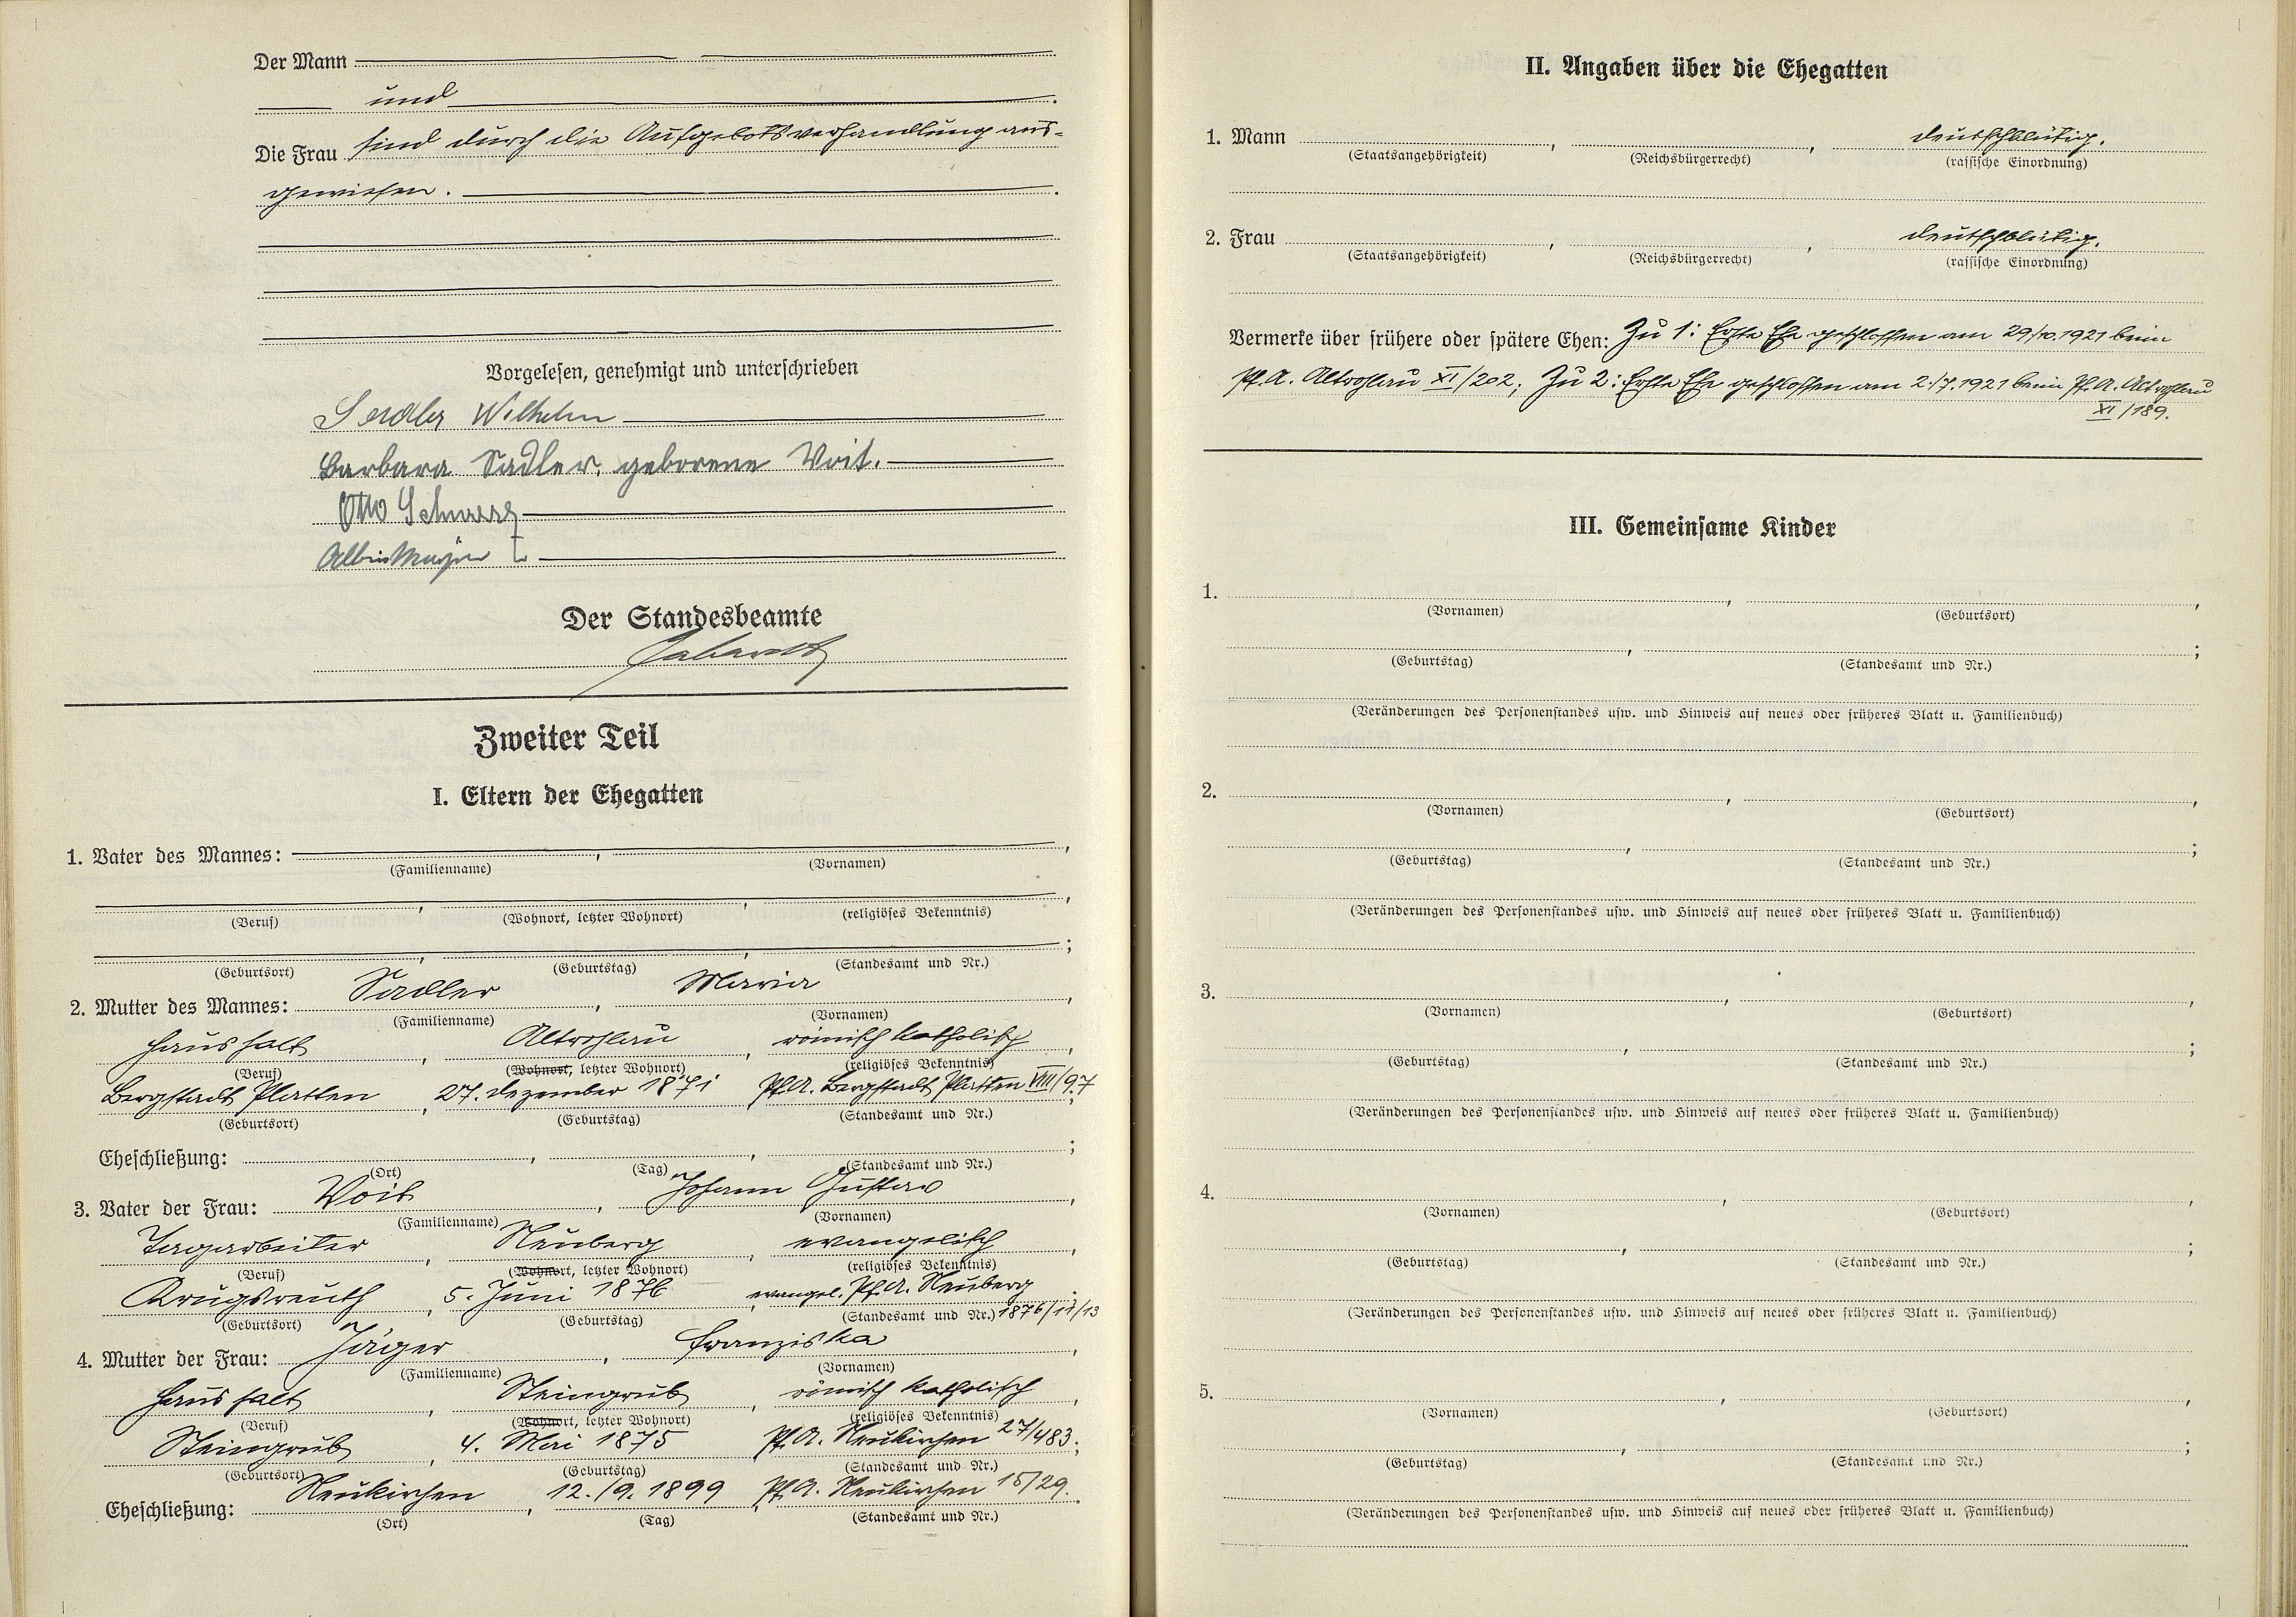 Der Mann
und
Die Frau sind durch die Aufgebotsverhandlung aus-
gewiesen.
Vorgelesen, genehmigt und unterschrieben
Sadler Wilhelm
Barbara Sadler, geborene Voit.
Otto
Albin
Der Standesbeamte
Zweiter Teil
I. Eltern der Ehegatten
1. Vater des Mannes: , ,
(Familienname) (Vornamen)
, , ,
(Beruf) (Wohnort, letzter Wohnort) (religiöses Bekenntnis)
, , ;
(Geburtsort) (Geburtstag) (Standesamt und Nr.)
2. Mutter des Mannes: Sadler , Maria ,
(Familienname) (Vornamen)
Haushalt , Altrohlau , römisch katholisch ,
(Beruf) (Wohnort, letzter Wohnort) (religiöses Bekenntnis)
Bergstadt Platten , 27. Dezember 1871 Pf.A. Bergstadt Platten VIII/97 ;
(Geburtsort) (Geburtstag) (Standesamt und Nr.)
Eheschließung: , , ;
(Ort) (Tag) (Standesamt und Nr.)
3. Vater der Frau: Voit , Johann Gustav ,
(Familienname) (Vornamen)
Tagarbeiter , Neuberg , evangelisch ,
(Beruf) (Wohnort, letzter Wohnort) (religiöses Bekenntnis)
Krugsreuth , 5. Juni 1876 , evangel. Pf.A. Neuberg ;
(Geburtsort) (Geburtstag) (Standesamt und Nr.) 1876/11/13
4. Mutter der Frau: Jäger , Franziska ,
(Familienname) (Vornamen)
Haushalt , Steingrub , römisch katholisch ,
(Beruf) (Wohnort, letzter Wohnort) (religiöses Bekenntnis)
Steingrub , 4. Mai 1875 , Pf.A. Neukirchen 27/483 ;
(Geburtsort) (Geburtstag) (Standesamt und Nr.)
Eheschließung: Neukirchen , 12./9. 1899 , Pf.A. Neukirchen 15/29.
(Ort) (Tag) (Standesamt und Nr.)
II. Angaben über die Ehegatten
1. Mann , , deutschblütig.
(Staatsangehörigkeit) (Reichsbürgerrecht) (rassische Einordnung)
2. Frau , , deutschblütig.
(Staatsangehörigkeit) (Reichsbürgerrecht) (rassische Einordnung)
Vermerke über frühere oder spätere Ehen: Zu 1: Erste Ehe geschlossen am 29./10.1921 beim
Pf.A. Altrohlau XI/202; Zu 2: Erste Ehe geschlossen am 2./7.1921 beim Pf.A. Altrohlau
XI/189.
III. Gemeinsame Kinder
1. , ,
(Vornamen) (Geburtsort)
, ;
(Geburtstag) (Standesamt und Nr.)
(Veränderungen des Personenstandes usw. und Hinweis auf neues oder früheres Blatt u. Familienbuch)
2. , ,
(Vornamen) (Geburtsort)
, ;
(Geburtstag) (Standesamt und Nr.)
(Veränderungen des Personenstandes usw. und Hinweis auf neues oder früheres Blatt u. Familienbuch)
3. , ,
(Vornamen) (Geburtsort)
, ;
(Geburtstag) (Standesamt und Nr.)
(Veränderungen des Personenstandes usw. und Hinweis auf neues oder früheres Blatt u. Familienbuch)
4. , ,
(Vornamen) (Geburtsort)
, ;
(Geburtstag) (Standesamt und Nr.)
(Veränderungen des Personenstandes usw. und Hinweis auf neues oder früheres Blatt u. Familienbuch)
5. , ,
(Vornamen) (Geburtsort)
, ;
(Geburtstag) (Standesamt und Nr.)
(Veränderungen des Personenstandes usw. und Hinweis auf neues oder früheres Blatt u. Familienbuch)